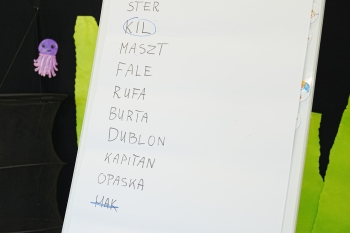 STER
KIL
MASZT
FALE
RUFA
BURTA
DUBLON
KAPITAN
OPASKA
HAK